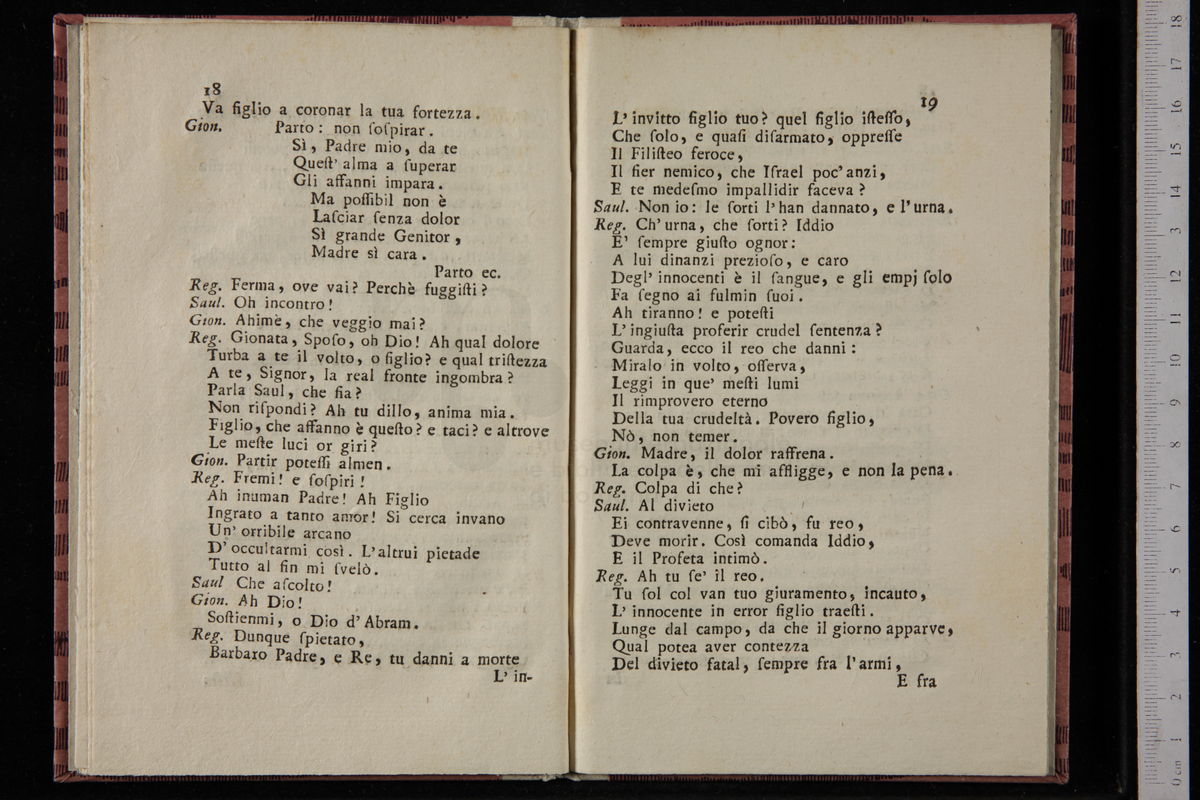 18
Va figlio a coronar la tua fortezza.
Gion. Parto: non ſoſpirar.
Sì, Padre mio, da te
Queſt' alma a ſuperar
Gli affanni impara.
Ma poſſibil non è
Laſciar ſenza dolor
Sì grande Genitor,
Madre sì cara.
Parto ec.
Reg. Ferma, ove vai? Perchè fuggiſti?
Saul. Oh incontro!
Gion. Ahimè, che veggio mai?
Reg. Gionata, Spoſo, oh Dio! Ah qual dolore
Turba a te il volto, o figlio? e qual triſtezza
A te, Signor, la real fronte ingombra?
Parla Saul, che fia?
Non riſpondi? Ah tu dillo, anima mia.
Figlio, che affanno è queſto? e taci? e altrove
Le meſte luci or giri?
Gion. Partir poteſſi almen.
Reg. Fremi! e ſoſpiri!
Ah inuman Padre! Ah Figlio
Ingrato a tanto amor! Si cerca invano
Un' orribile arcano
D' occultarmi così. L'altrui pietade
Tutto al fin mi ſvelò.
Saul Che aſcolto!
Gion. Ah Dio!
Soſtienmi, o Dio d'Abram.
Reg. Dunque ſpietato,
Barbaro Padre, e Re, tu danni a morte
L' in-
19
L' invitto figlio tuo? quel figlio iſteſſo,
Che ſolo, e quaſi diſarmato, oppreſſe
Il Filiſteo feroce,
Il fier nemico, che Iſrael poc' anzi,
E te medeſmo impallidir faceva?
Saul. Non io: le ſorti l'han dannato, e l'urna.
Reg. Ch' urna, che ſorti? Iddio
E' ſempre giuſto ognor:
A lui dinanzi prezioſo, e caro
Degl' innocenti è il ſangue, e gli empj ſolo
Fa ſegno ai fulmin ſuoi.
Ah tiranno! e poteſti
L' ingiuſta proferir crudel ſentenza?
Guarda, ecco il reo che danni:
Miralo in volto, oſſerva,
Leggi in que' meſti lumi
Il rimprovero eterno
Della tua crudeltà. Povero figlio,
Nò, non temer.
Gion. Madre, il dolor raffrena.
La colpa è, che mi affligge, e non la pena.
Reg. Colpa di che?
Saul. Al divieto
Ei contravenne, ſi cibò, fu reo,
Deve morir. Così comanda Iddio,
E il Profeta intimò.
Reg. Ah tu ſe' il reo.
Tu ſol col van tuo giuramento, incauto,
L' innocente in error figlio traeſti.
Lunge dal campo, da che il giorno apparve,
Qual potea aver contezza
Del divieto fatal, ſempre fra l'armi,
E fra
0 cm 1 2 3 4 5 6 7 8 9 10 11 12 13 14 15 16 17 18